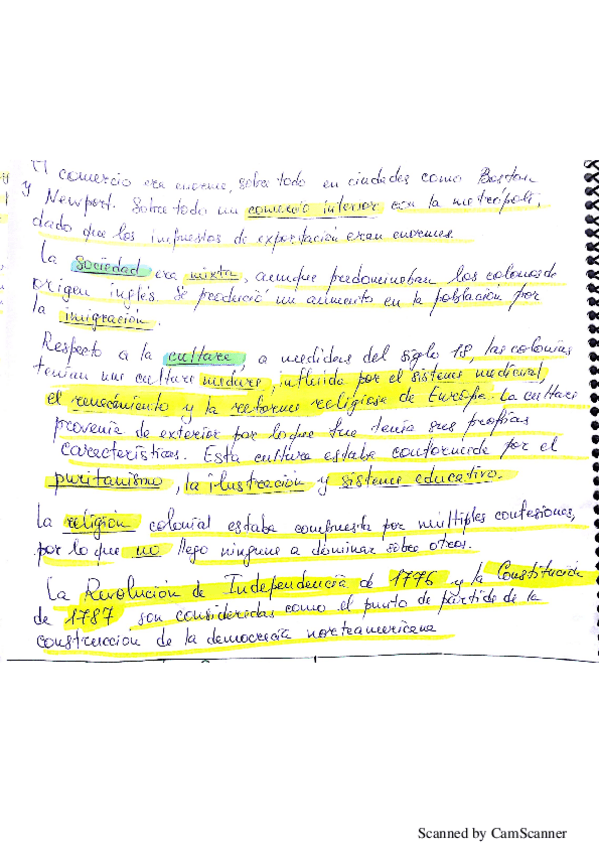 El comercio era enorme, sobre todo en ciudades como Boston
y Newport. Sobre todo un comercio interior con la metrópoli,
dado que los impuestos de exportación eran enormes.
La sociedad era mixta, aunque predominaban los colonos de
origen inglés. Se produció un aumento en la población por
la imigración.
Respecto a la cultura, a mediados del siglo 18, las colonias
tenían una cultura madura, influida por el sistema medieval,
el renacimiento y la reforma religiosa de Europa. La cultura
provenía de exterior por lo que fue tenía sus propias
características. Esta cultura estaba conformada por el
puritanismo, la ilustración y sistema educativo.
La religión colonial estaba compuesta por múltiples confesiones,
por lo que no llego ninguna a dominar sobre otros.
La Revolución de Independencia de 1776 y la Constitución
de 1787, son consideradas como el punto de partida de la
construccion de la democracia norteamericana
Scanned by CamScanner